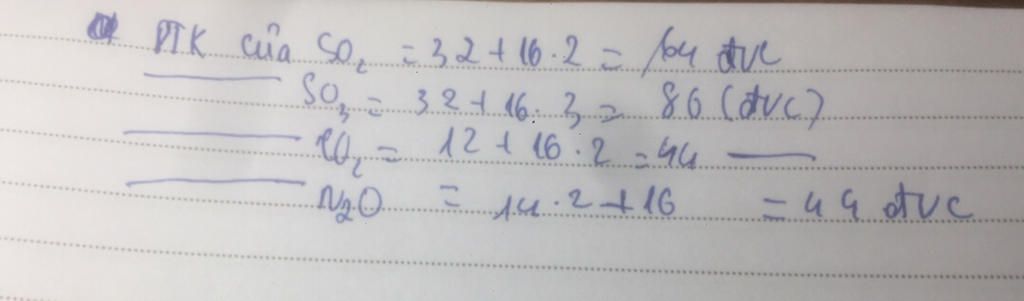 PTK của SO2 = 32 + 16.2 = 64 đvC
SO3 = 32 + 16.3 = 80 (đvC)
CO2 = 12 + 16.2 = 44
N2O = 14.2 + 16 = 44 đvC